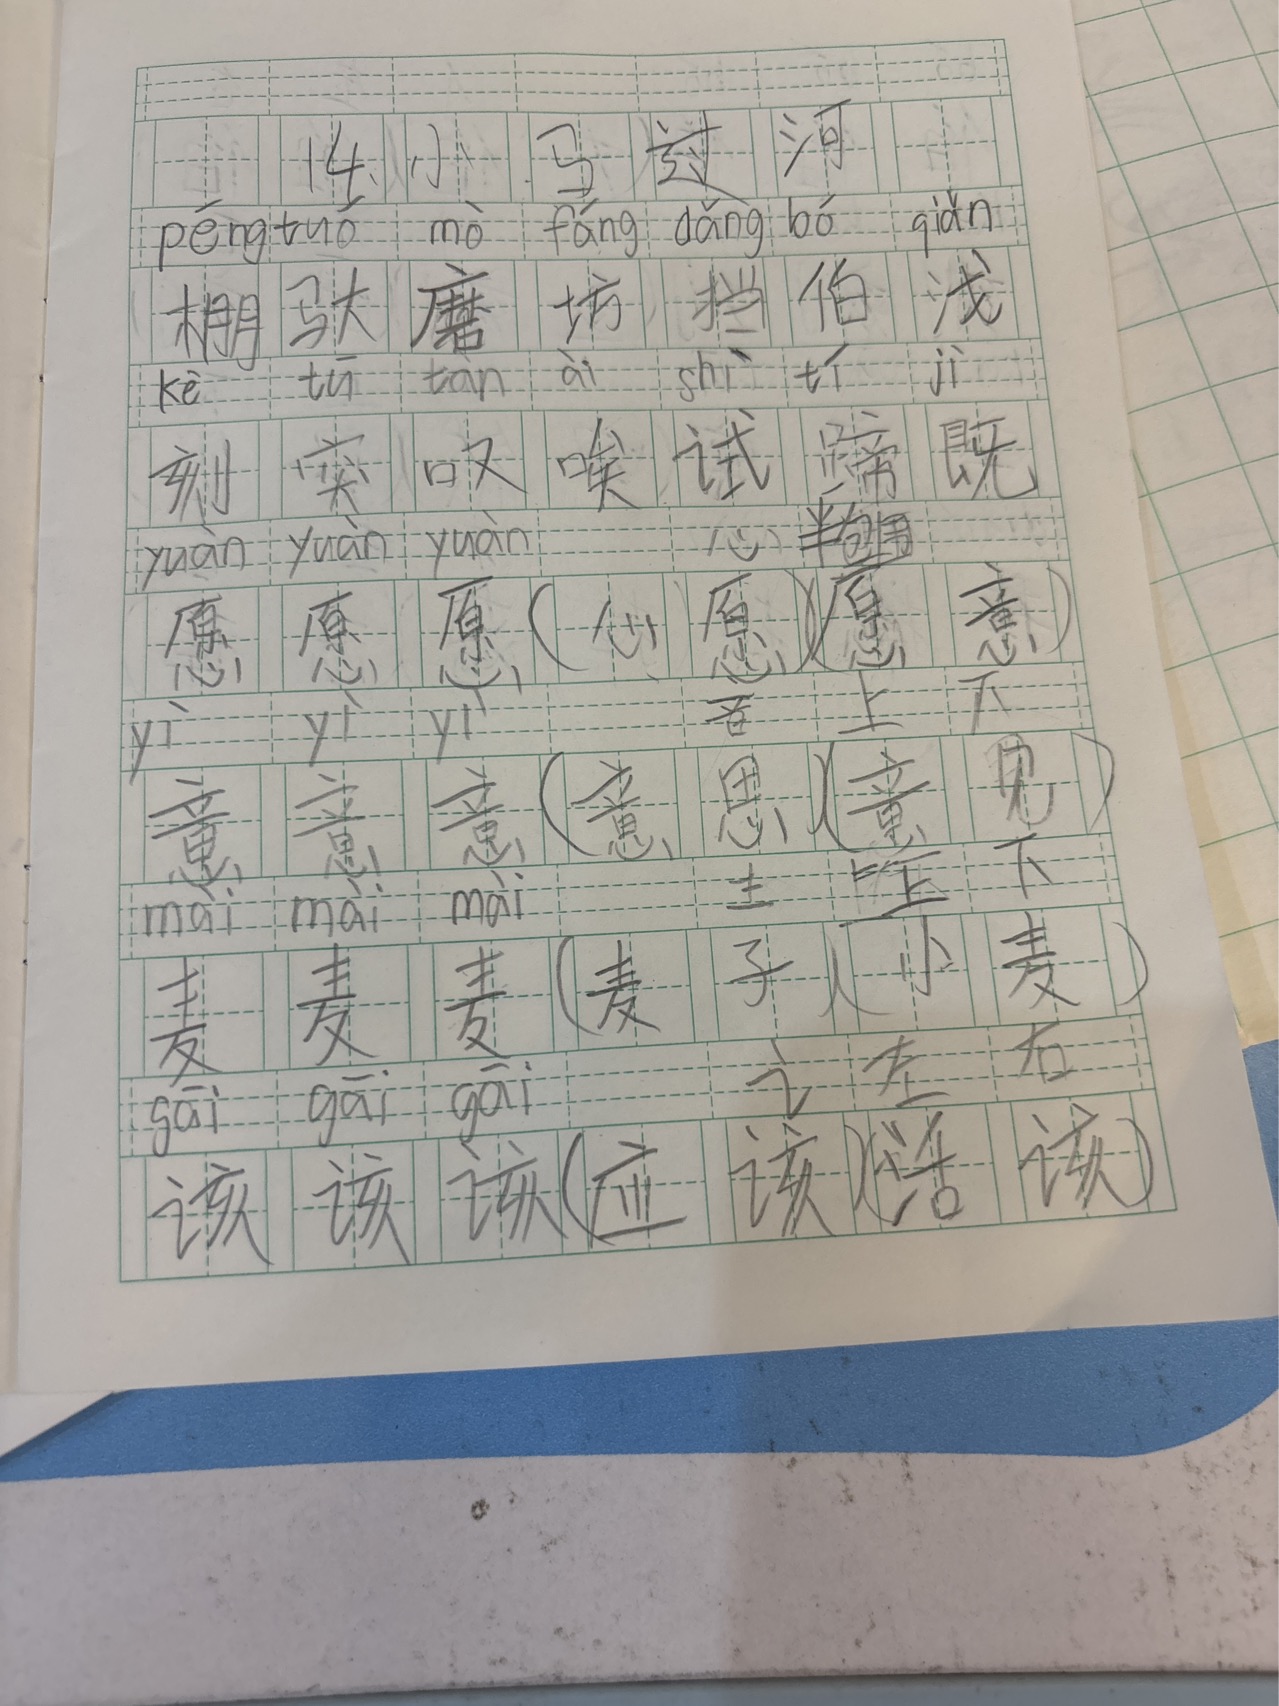 14 小马过河
péng tuó mò fáng dǎng bó qiǎn
棚 驮 磨 坊 挡 伯 浅
kè tū tàn ài shì tí jì
刻 突 叹 唉 试 蹄 既
yuàn yuàn yuàn 心 半包围
愿 愿 愿 (心 愿)(愿 意)
yì yì yì 音 上 下
意 意 意 (意 思)(意 见)
mài mài mài 龶 上 下
麦 麦 麦 (麦 子)(小 麦)
gāi gāi gāi 讠 左 右
该 该 该 (应 该)(活 该)